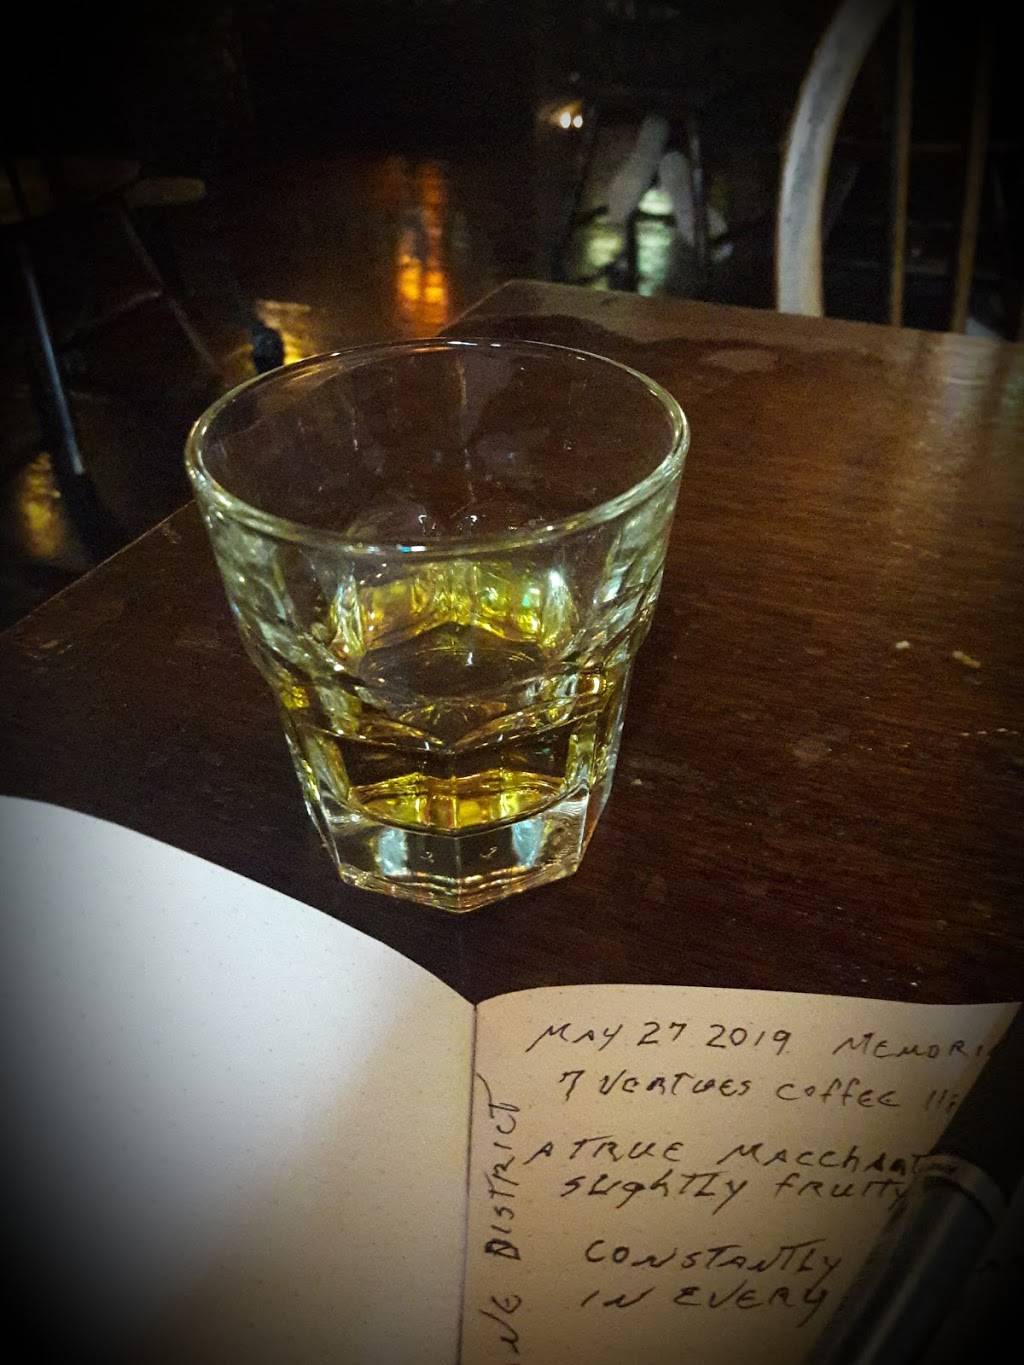 MAY 27 2019 MEMORI
7 VERTUES COFFEE
A TRUE MACCHIAT
SLIGHTLY FRUITY
CONSTANTLY
IN EVERY
NE DISTRICT